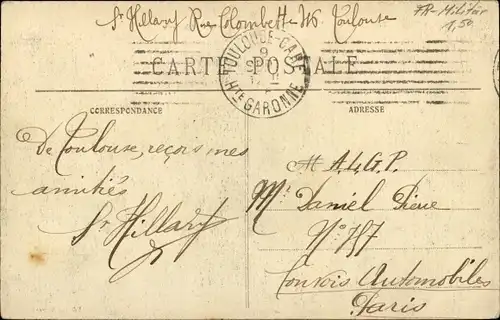 St Hillary Rue Colombette Toulouse
FR-Militär
1,50
TOULOUSE-GARE
9
Hte GARONNE
CARTE POSTALE
CORRESPONDANCE
ADRESSE
De Toulouse, reçois mes
amitiés
St Hillary
A.L.G.P.
Mr Daniel
No 757
Convois Automobiles
Paris